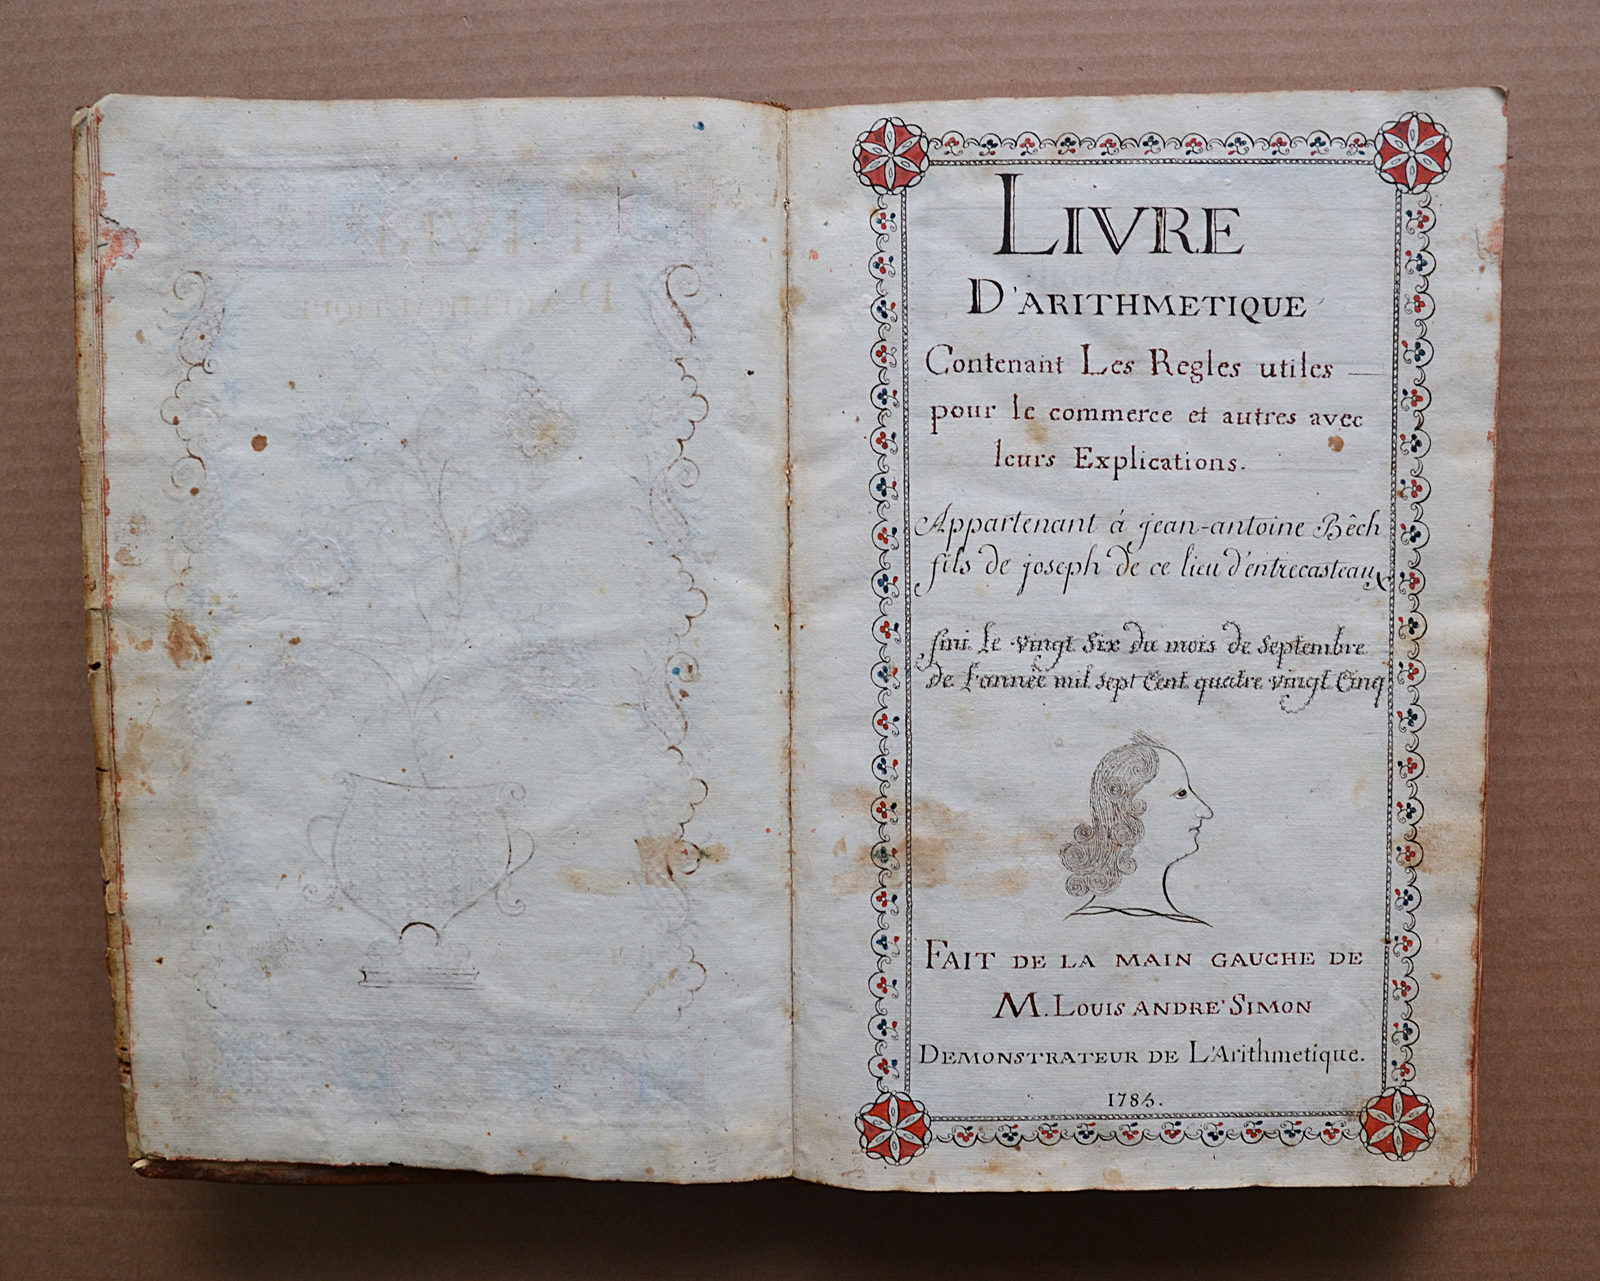 LIVRE
D'ARITHMETIQUE
Contenant Les Regles utiles
pour le commerce et autres avec
leurs Explications.
Appartenant á jean-antoine Bêch
fils de joseph de ce lieu d'entrecasteaux
fini le vingt six du mois de septembre
de l'année mil sept Cent quatre vingt Cinq
FAIT DE LA MAIN GAUCHE DE
M. LOUIS ANDRE' SIMON
DEMONSTRATEUR DE L'Arithmetique.